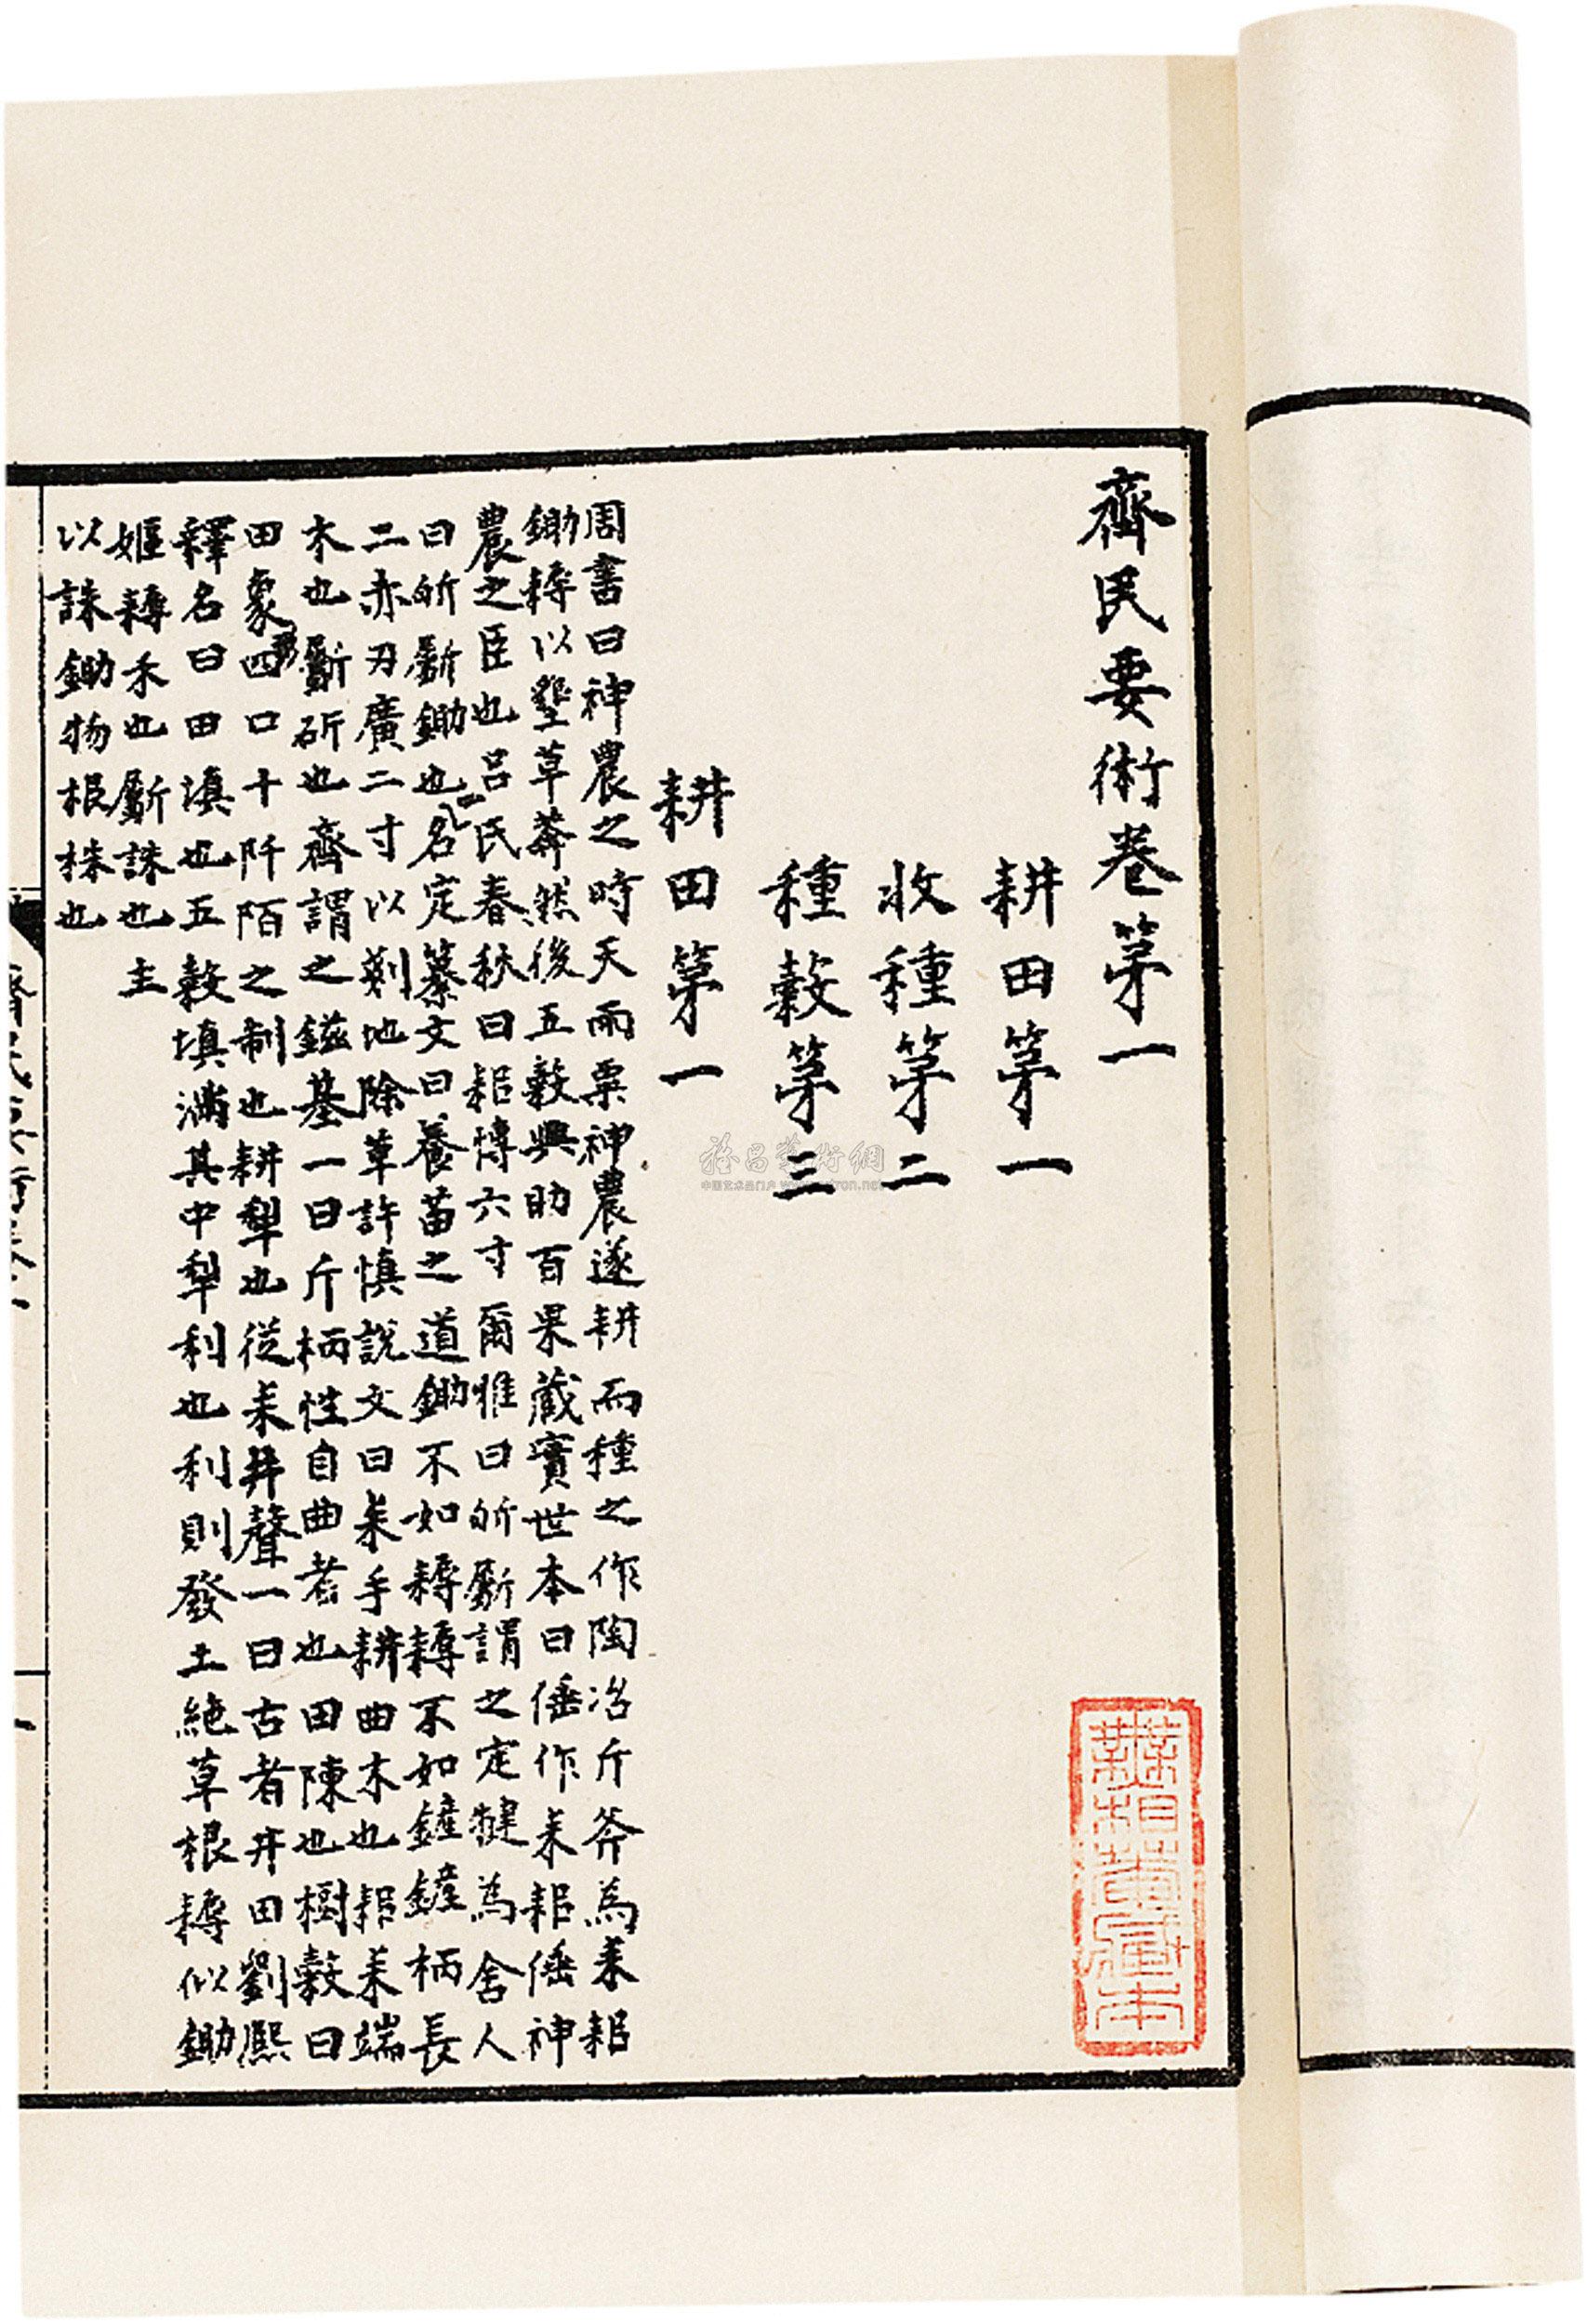 齊民要術卷第一
耕田第一
收種第二
種穀第三
耕田第一
周書曰神農之時天雨粟神農遂耕而種之作陶冶斤斧為耒耜
鋤耨以墾草莽然後五穀興助百果藏實世本曰倕作耒耜倕神
農之臣也呂氏春秋曰耜博六寸爾雅曰斪斸謂之定犍為舍人
曰斪斸鋤也一名定纂文曰養苗之道鋤不如耨耨不如鏟鏟柄長
二赤刃廣二寸以剗地除草許慎說文曰耒手耕曲木也耜耒端
木也斸斫也齊謂之鎡基一曰斤柄性自曲者也田陳也樹穀曰
田象四口十阡陌之制也耕犁也從耒井聲一曰古者井田劉熙
釋名曰田填也五穀填滿其中犁利也利則發土絕草根耨似鋤
嫗耨禾也斸誅也主
以誅鋤物根株也
雅昌藝術網
中国艺术品门户 www.artron.net